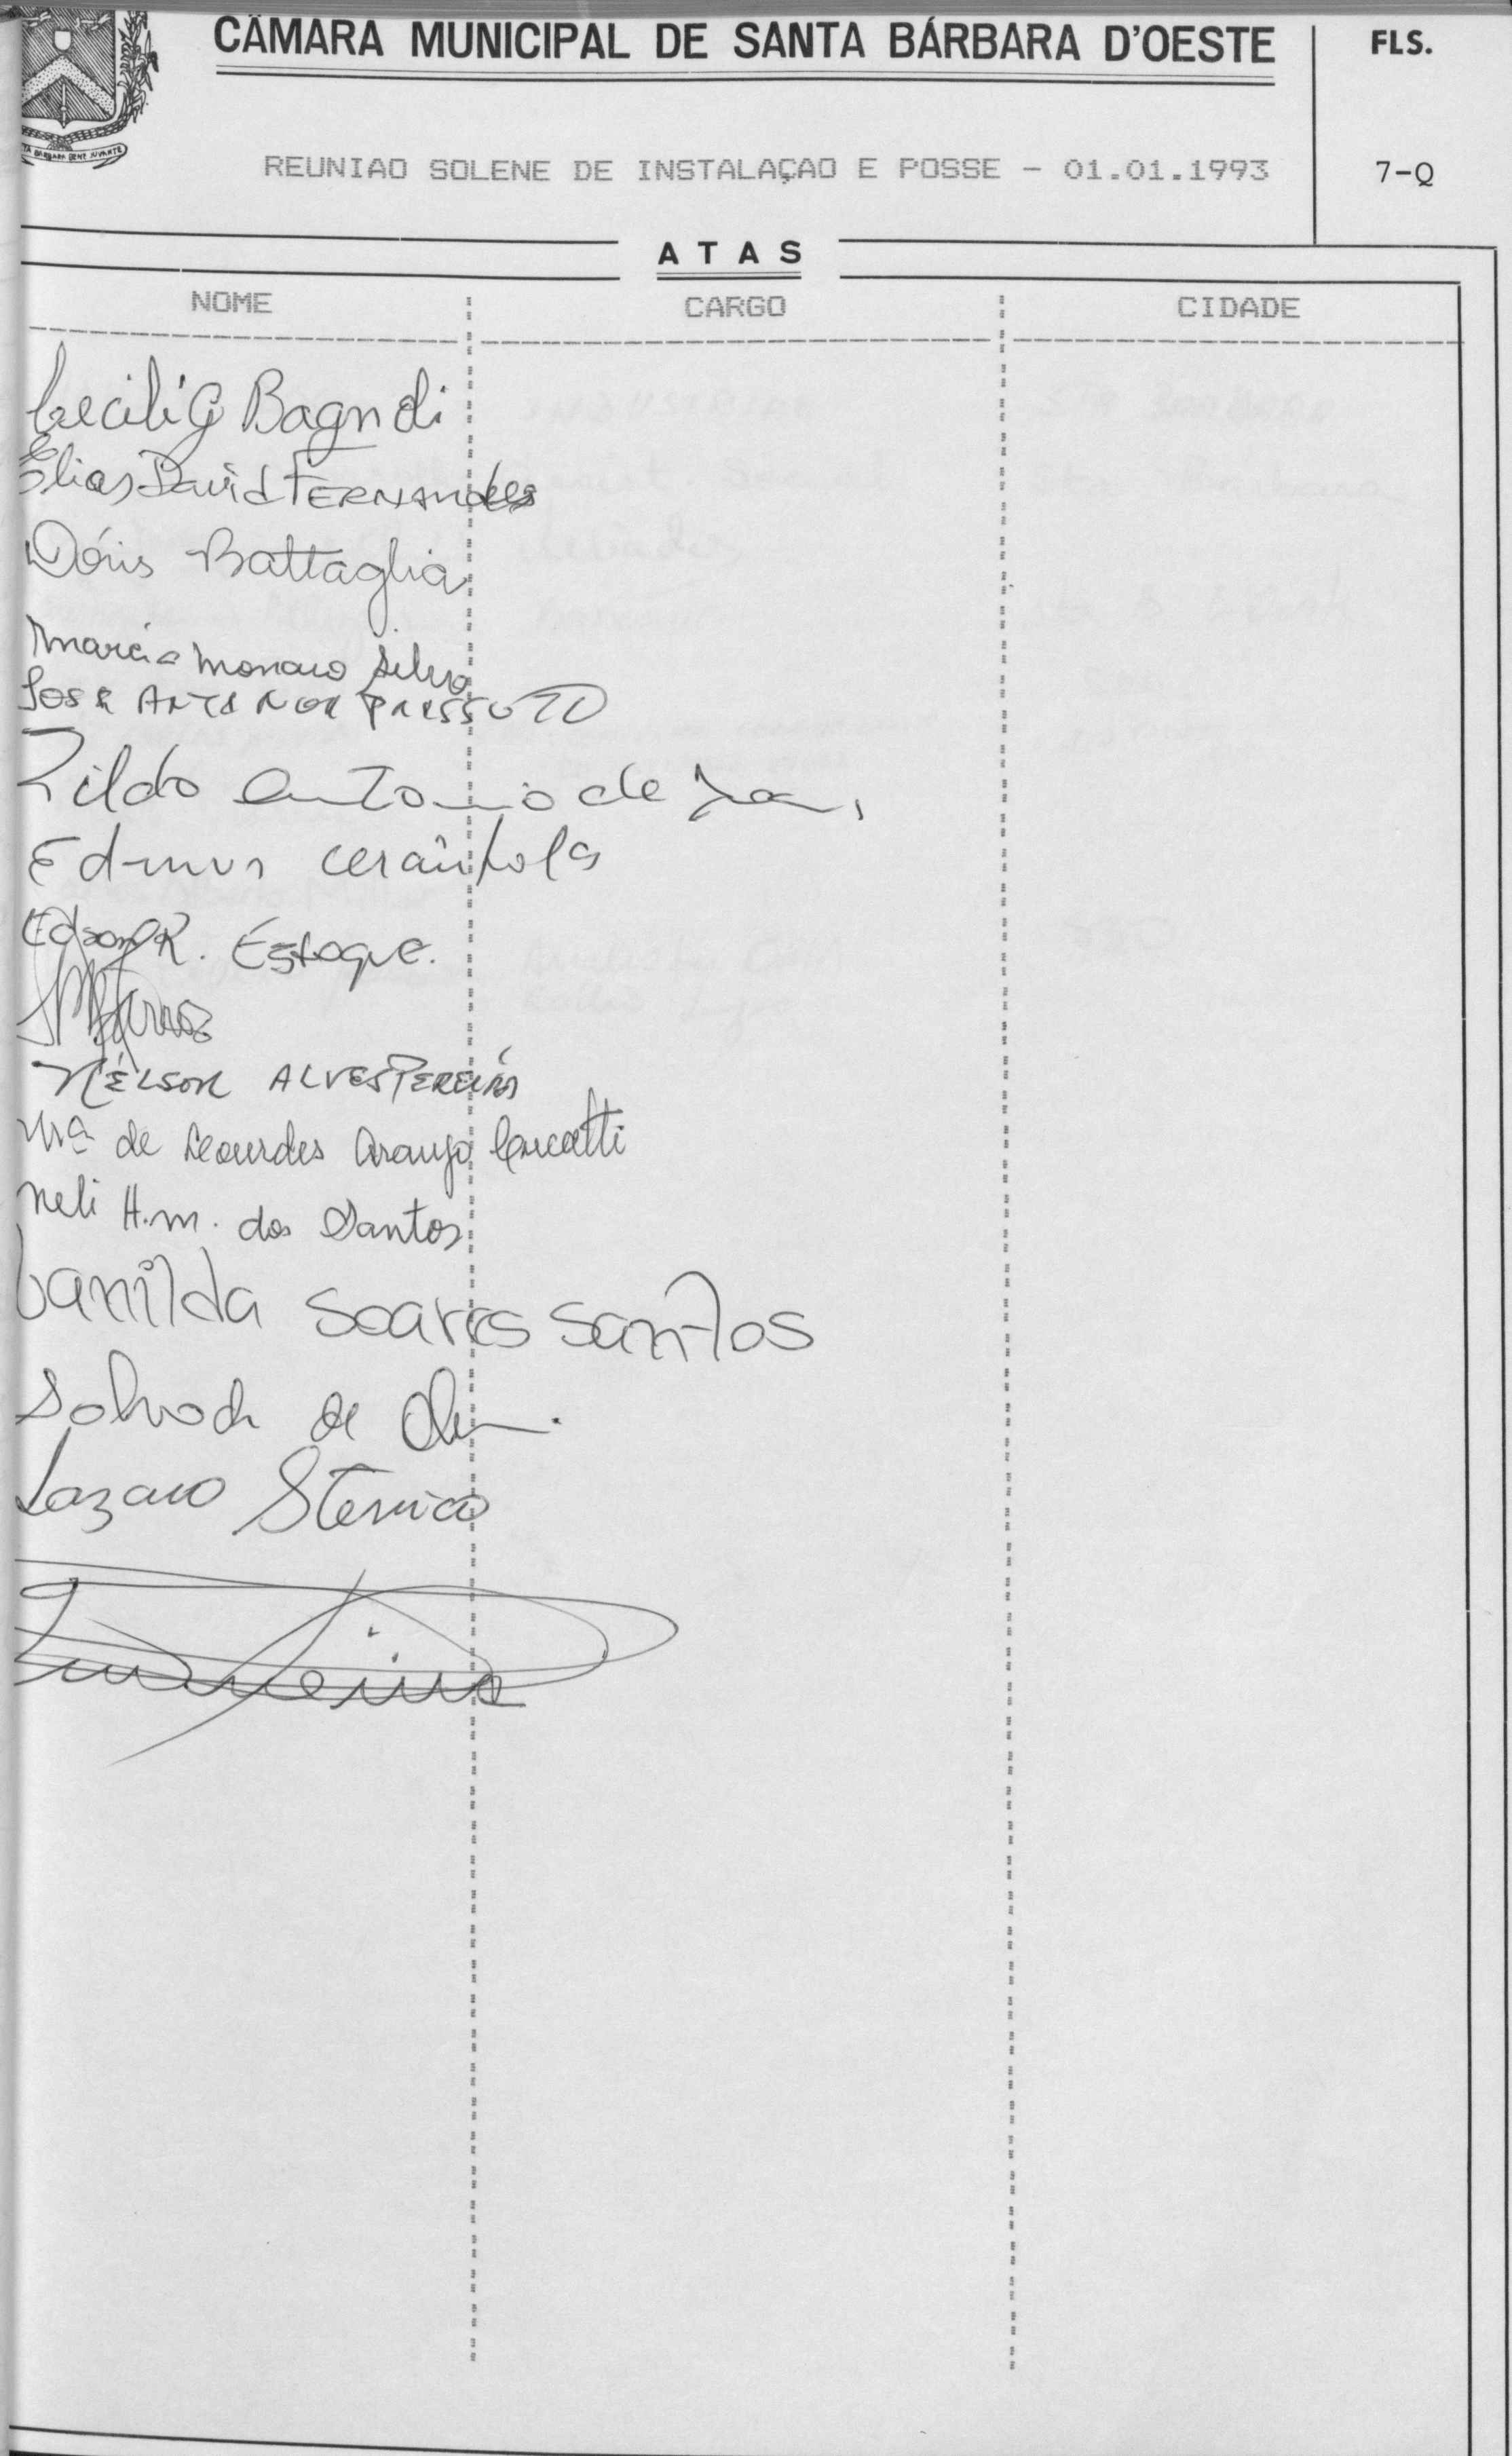 CÂMARA MUNICIPAL DE SANTA BÁRBARA D'OESTE
FLS.
REUNIAO SOLENE DE INSTALAÇAO E POSSE - 01.01.1993
7-Q
ATAS
NOME CARGO CIDADE
Cecília Bagnoli
Elias David FERNANdes
Dóris Battaglia
Marcia Monaro Silva
JOSE ANTENOR
Zildo Antonio de
Edmur Cerântola
Edson R. Estoque.
NÉLSON ALVES PEREIRA
Mª de Lourdes Araujo
Neli H. M. dos Santos
Vanilda Soares Santos
de
Lazaro